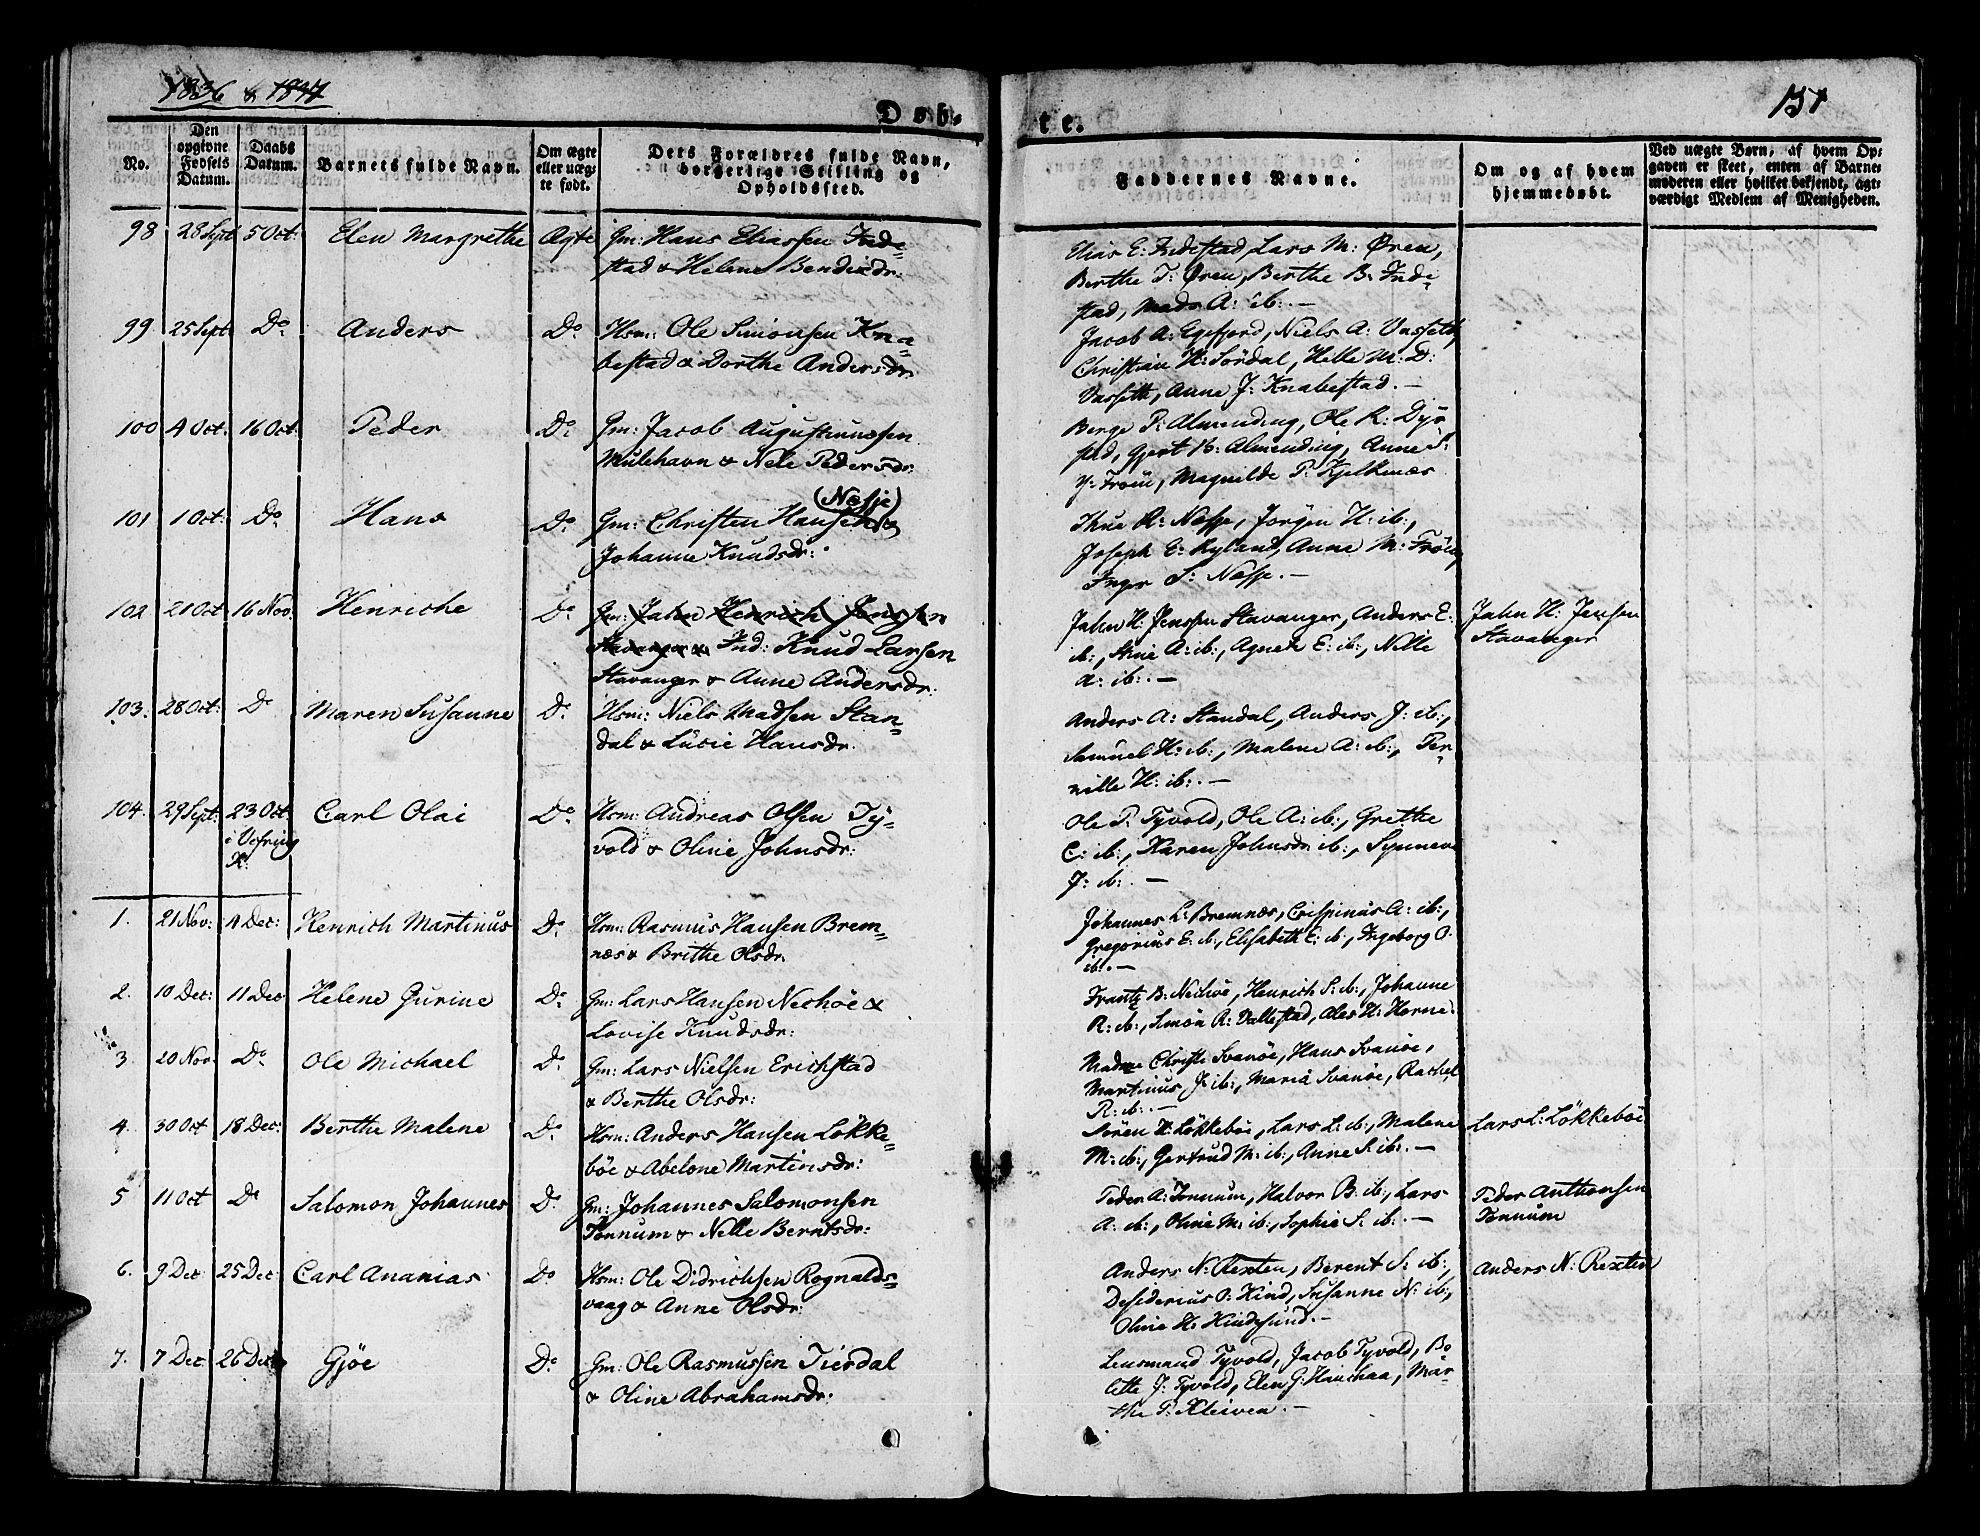 1836 & 1837
Døb-
No.
Den opgivne Fødsels Datum.
Daabs Datum.
Barnets fulde Navn.
Om ægte eller uægte født.
Dets Forældres fulde Navn, borgerlige Stilling og Opholdssted.
98 28 Sept 5 Oct: Elen Margrethe Ægte Gm: Hans Eliassen Inde=
stad & Helene Bendixdr:
99 25 Sept Do. Anders Do. Hsm: Ole Simonsen Kna=
bestad & Dorthe Andersdr.
100 4 Oct: 16 Oct: Peder Do. Gm: Jacob Augustinussen
Mulehavn & Nele Pedersdr:
(Nesje)
101 1 Oct: Do. Hans Do. Gm: Christen Hansen &
Johanne Knudsdr:
102 21 Oct 16 Nov. Henriche Do. Gm: Jahn Henrich Jensen
Stavanger & Ind: Knud Larsen
Stavanger & Anne Andersdr:
103. 28 Oct: Do Maren Susanne Do. Hsm: Niels Madsen Stan=
dal & Lucie Hansdr.
104. 29 Sept: 23 Oct. Carl Olai Do. Hsm: Andreas Olsen Ty=
i Vefring
K:
vold & Oline Johnsdr:
1. 21 Nov: 4 Dec: Henrich Martinus Do. Hsm: Rasmus Hansen Brem=
næs & Brithe Olsdr.
2. 10 Dec: 11 Dec Helene Gurine Do. Gm: Lars Hansen Nechöe &
Lovise Knudsdr:
3. 20 Nov: Do Ole Michael Do. Gm: Lars Nielsen Erichstad
& Berthe Olsdr:
4. 30 Oct 18 Dec: Berthe Malene Do. Hsm: Anders Hansen Lökke=
böe & Abelone Martinsdr:
5 11 Oct Do Salomon Johannes Do. Gm: Johannes Salomonsen
Tonnum & Nelle Berntsdr:
6. 9 Dec 25 Dec: Carl Ananias Do Hsm: Ole Didrichsen Rognalds=
vaag & Anne Olsdr:
7. 7 Dec: 26 Dec: Gjöe Do. Gm: Ole Rasmussen Tierdal
& Oline Abrahamsdr:
te.
151
Faddernes Navne.
Om og af hvem hjemmedøbt.
Ved uægte Børn, af hvem Op=
gaven er skeet, enten af Barne=
moderen eller hvilket bekjendt, agt=
værdigt Medlem af Menigheden.
Elias E: Indestad, Lars M: Øren,
Berthe T: Øren, Berthe B: Inde=
stad, Mads A: ib: —
Jacob A: Egefjord, Niels A: Vasseth,
Christian H: Sördal, Helle M: D:
Vasseth, Anne J: Knabestad. —
Berge P: Almending, Ole R: Dyö
stad, Gjert K: Almending, Anne S:
Y: Fröen, Magnilde P: Kjelkenæs
Thue R: Nesse, Jörgen H: ib:,
Joseph E: Ryland, Anne M: Fröen,
Inger S: Nesse. —
Jahn H: Jenssen Stavanger, Anders E: Jahn H: Jensen
ib:, Stine A: ib:, Agnete E: ib:, Nille Stavanger
A: ib: —
Anders A: Standal, Anders J: ib:,
Samuel H: ib:, Malene A: ib:, Per=
nille H: ib: —
Ole P: Tyvold, Ole A: ib:, Grethe
C: ib:, Karen Johnsdr ib:, Synneve
J: ib: —
Johannes L: Bremnæs, Crispinus A: ib:,
Gregorius E: ib:, Elisabeth E: ib:, Ingeborg O.
ib: —
Frantz B: Nechöe, Henrich S: ib:, Johanne
R: ib:, Simon R: Dallestad, Oles H: Horne.
Madme Christi Svanöe, Hans Svanöe,
Martinus J: ib:, Maria Svanöe, Rachel
R: ib: —
Sören H: Lökkeböe, Lars L: ib:, Malene Lars L: Lökkeböe
M: ib:, Gertrud M: ib:, Anne S: ib: —
Peder A: Tonnum, Halvor B: ib:, Lars Peder Anthonsen
A: ib:, Oline M: ib:, Sophie S: ib: — Tonnum
Anders N: Rexten, Berent S: ib:, Anders N: Rexten
Desiderius P: Hind, Susanne N: ib:,
Oline H: Hindesund. —
Lensmand Tyvold, Jacob Tyvold, Bo
lette J: Tyvold, Elen G: Hinchaa, Mar=
the P: Kleiven. —